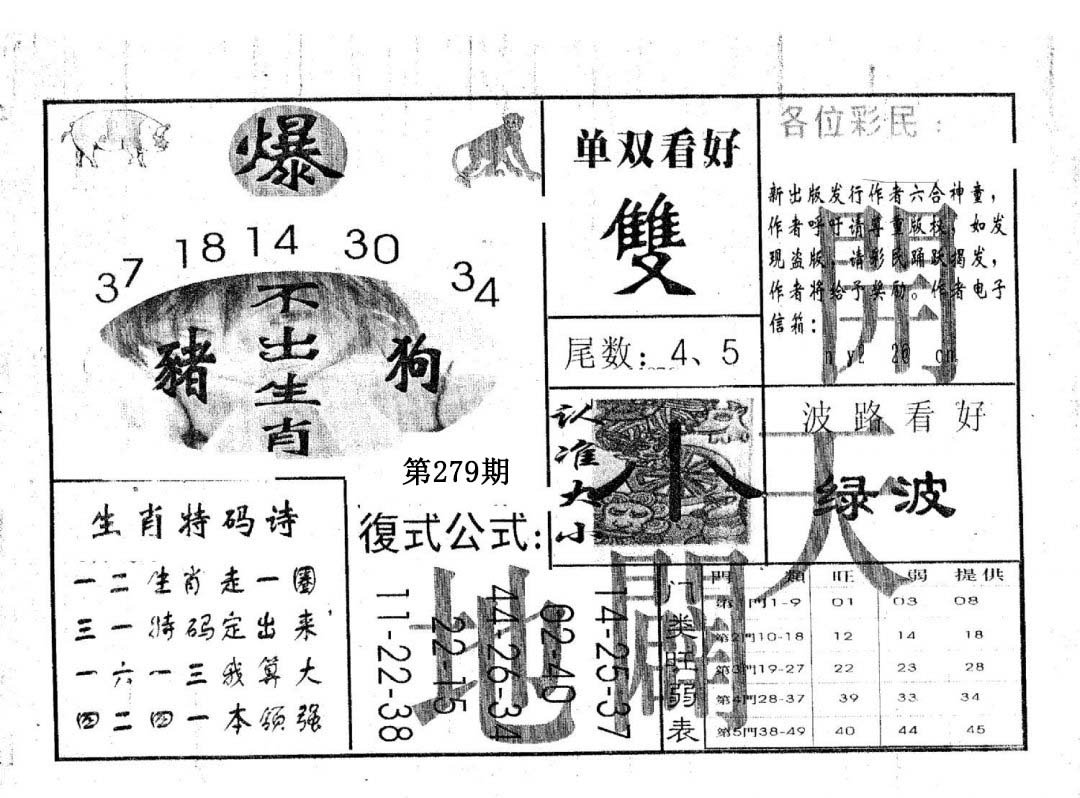 爆
37 18 14 30 34
不出生肖
豬
狗
第279期
单双看好
雙
尾数：4、5
认准大小
小
各位彩民：
新出版发行作者六合神童，
作者呼吁请尊重版权，如发
现盗版，请彩民踊跃揭发，
作者将给予奖励。作者电子
信箱：
開
天
闢
地
波路看好
绿波
生肖特码诗
一二生肖走一圈
三一特码定出来
一六一三我算大
四二四一本领强
復式公式:
11-22-38
22-15
44-26-34
02-40
14-25-37
门类旺弱表
門 類 旺 弱 提供
第1門1-9 01 03 08
第2門10-18 12 14 18
第3門19-27 22 23 28
第4門28-37 39 33 34
第5門38-49 40 44 45